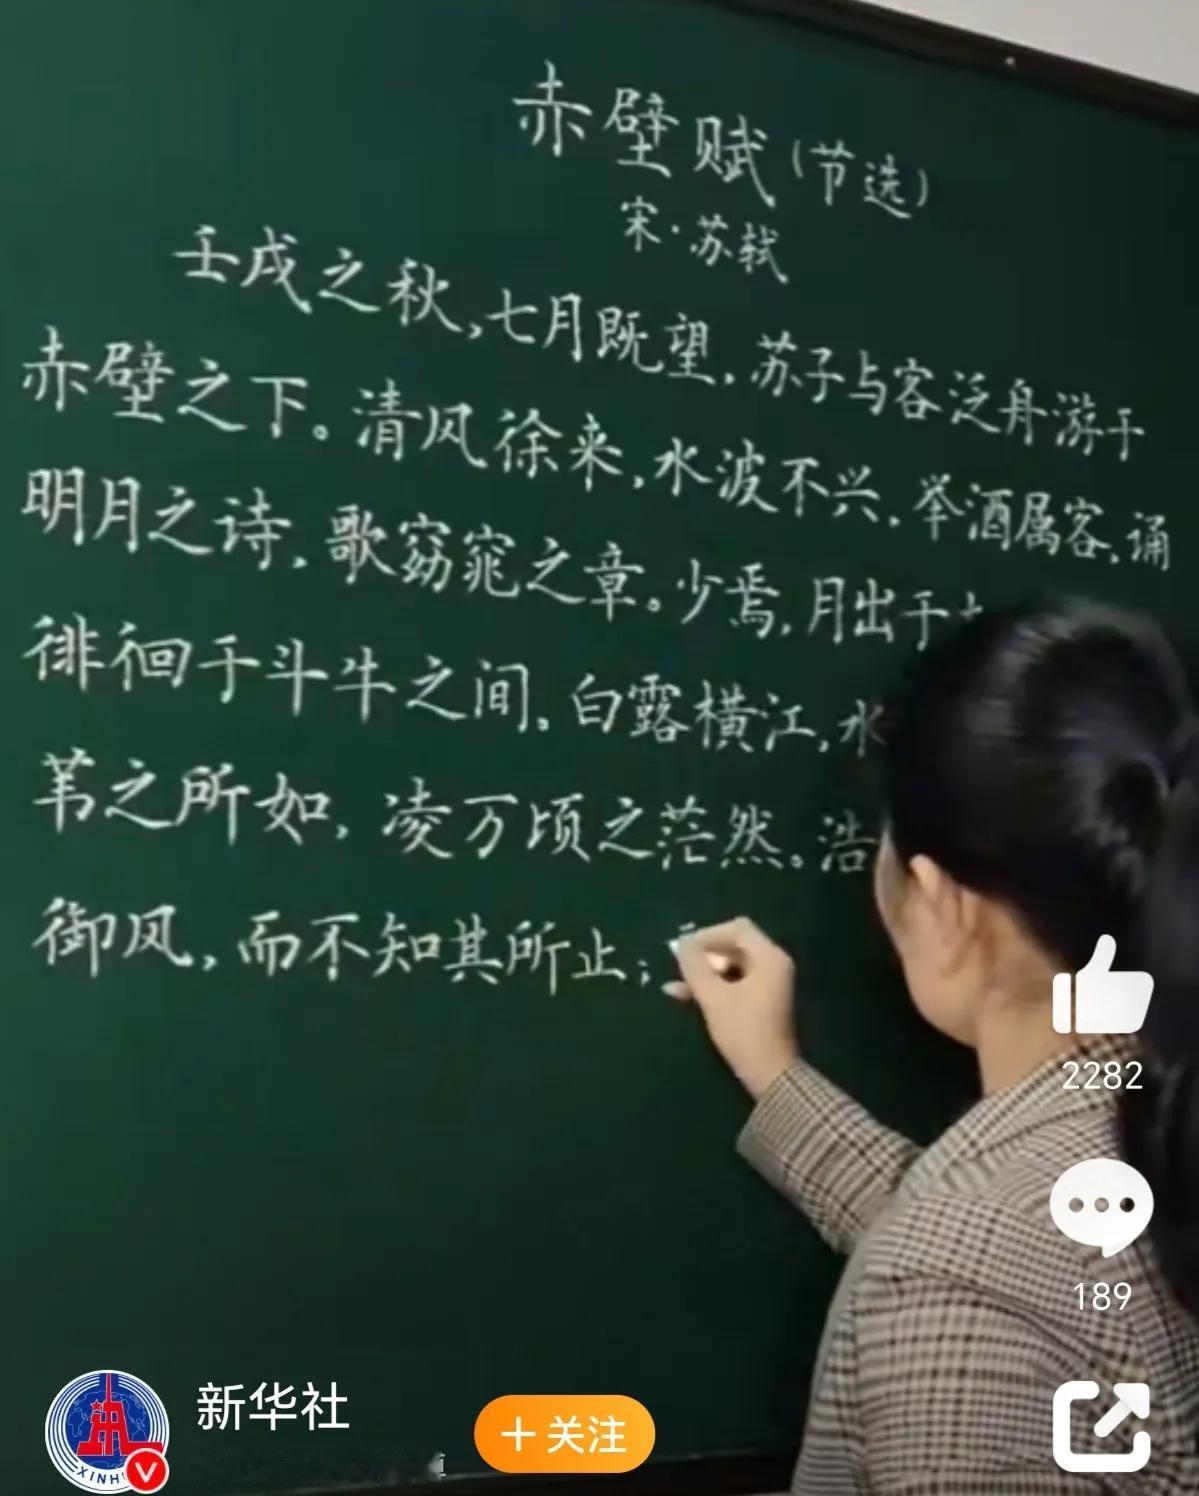 赤壁赋(节选)
宋·苏轼
壬戌之秋,七月既望,苏子与客泛舟游于
赤壁之下。清风徐来,水波不兴,举酒属客,诵
明月之诗,歌窈窕之章。少焉,月出于
徘徊于斗牛之间。白露横江,水
苇之所如,凌万顷之茫然。浩
御风,而不知其所止;
2282
189
新华社
XINH
V
+关注